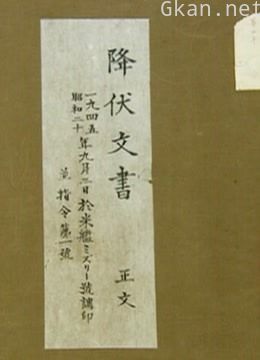 Gkan.net
降伏文書
正文
一九四五
昭和二十
年九月二日於米艦ミズリー號調印
並指令第一號